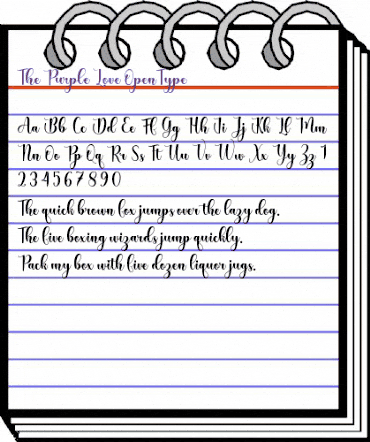 The Purple Love OpenType
Aa Bb Cc Dd Ee Ff Gg Hh Ii Jj Kk Ll Mm
Nn Oo Pp Qq Rr Ss Tt Uu Vv Ww Xx Yy Zz 1
2 3 4 5 6 7 8 9 0
The quick brown fox jumps over the lazy dog.
The five boxing wizards jump quickly.
Pack my box with five dozen liquor jugs.